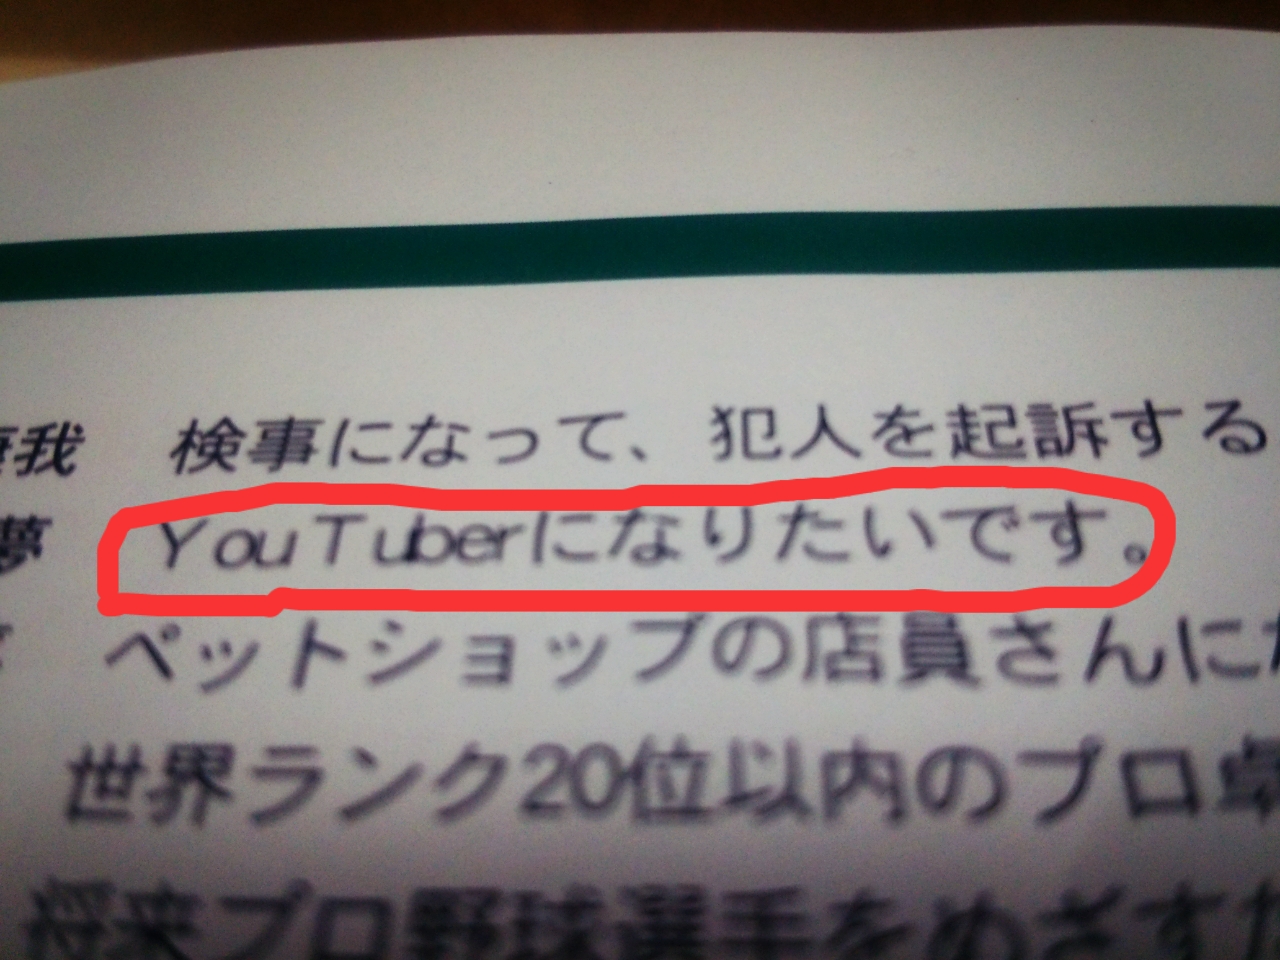 我 検事になって、犯人を起訴する
夢 YouTuberになりたいです。
ペットショップの店員さんに
世界ランク20位以内のプロ卓
将来プロ野球選手をめざす